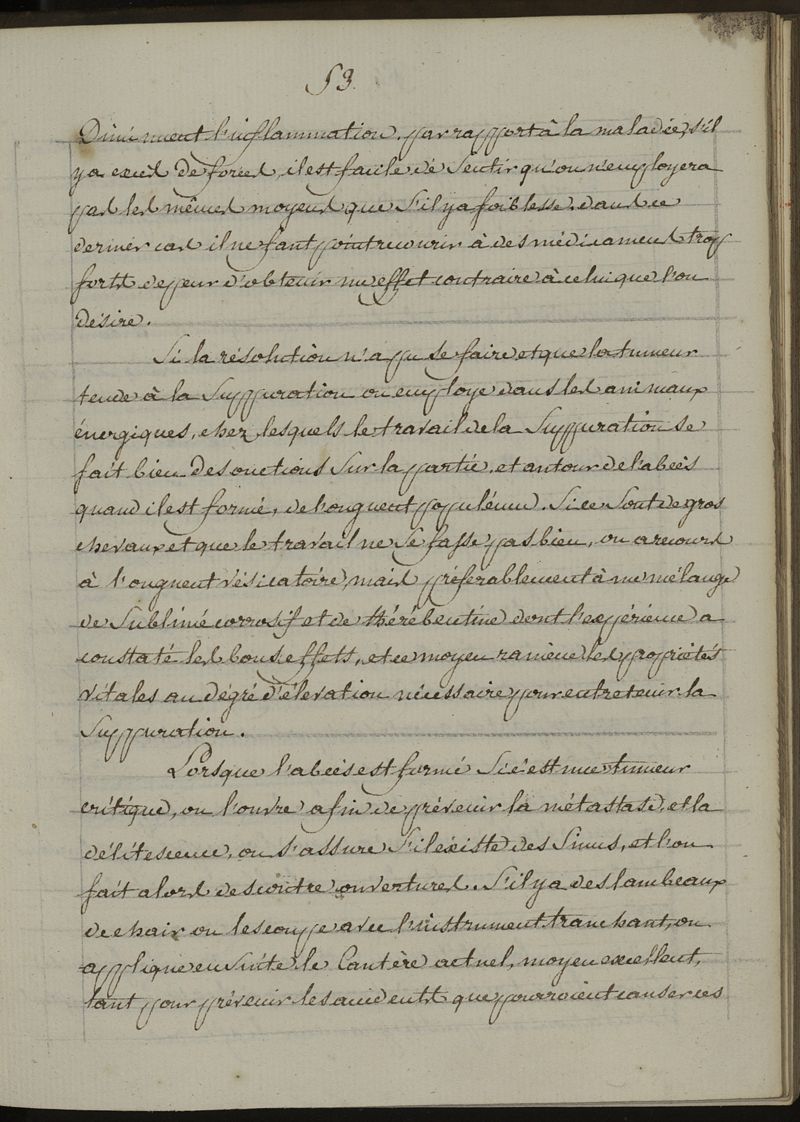 53.
Diminuent l'inflammation. par rapport à la maladie, s'il
y a excès de forces, il est facile de sentir qu'on n'employera
pas les mêmes moyens que s'il y a foiblesse. dans ce
dernier cas il ne faut point recourir à des médicamens trop
forts de peur d'obtenir un effet contraire à celui que l'on
désire.
Si la résolution n'a pu se faire et que la tumeur
tende à la Suppuration on employe dans les animaux
énergiques, chez lesquels le travail de la Suppuration se
fait bien des onctions Sur la partie, et autour de l'abcès
quand il est formé, de l'onguent populéum. Si ce Sont de gros
chevaux et que le travail ne se fasse pas bien, on a recours
à l'onguent vésicatoire, mais préferablement à un mélange
de Sublimé corrosif et de thérébentine dont l'expérience a
constaté les bons effets, et ce moyen ramène les propriétés
vitales au dégré d'élevation nécessaire pour entretenir la
Suppuration.
Lorsque l'abcès est formé Si c'est une tumeur
critique, on l'ouvre afin de prévenir la métastase, et la
délitescence, on s'assure S'il éxiste des Sinus, et l'on
fait alors des contre ouvertures. S'il y a des lambeaux
de chair on les coupe avec l'instrument tranchant, on
applique en suite le Cautère actuel, moyen excellent,
tant pour prévenir les accidents que pourroient causer ces